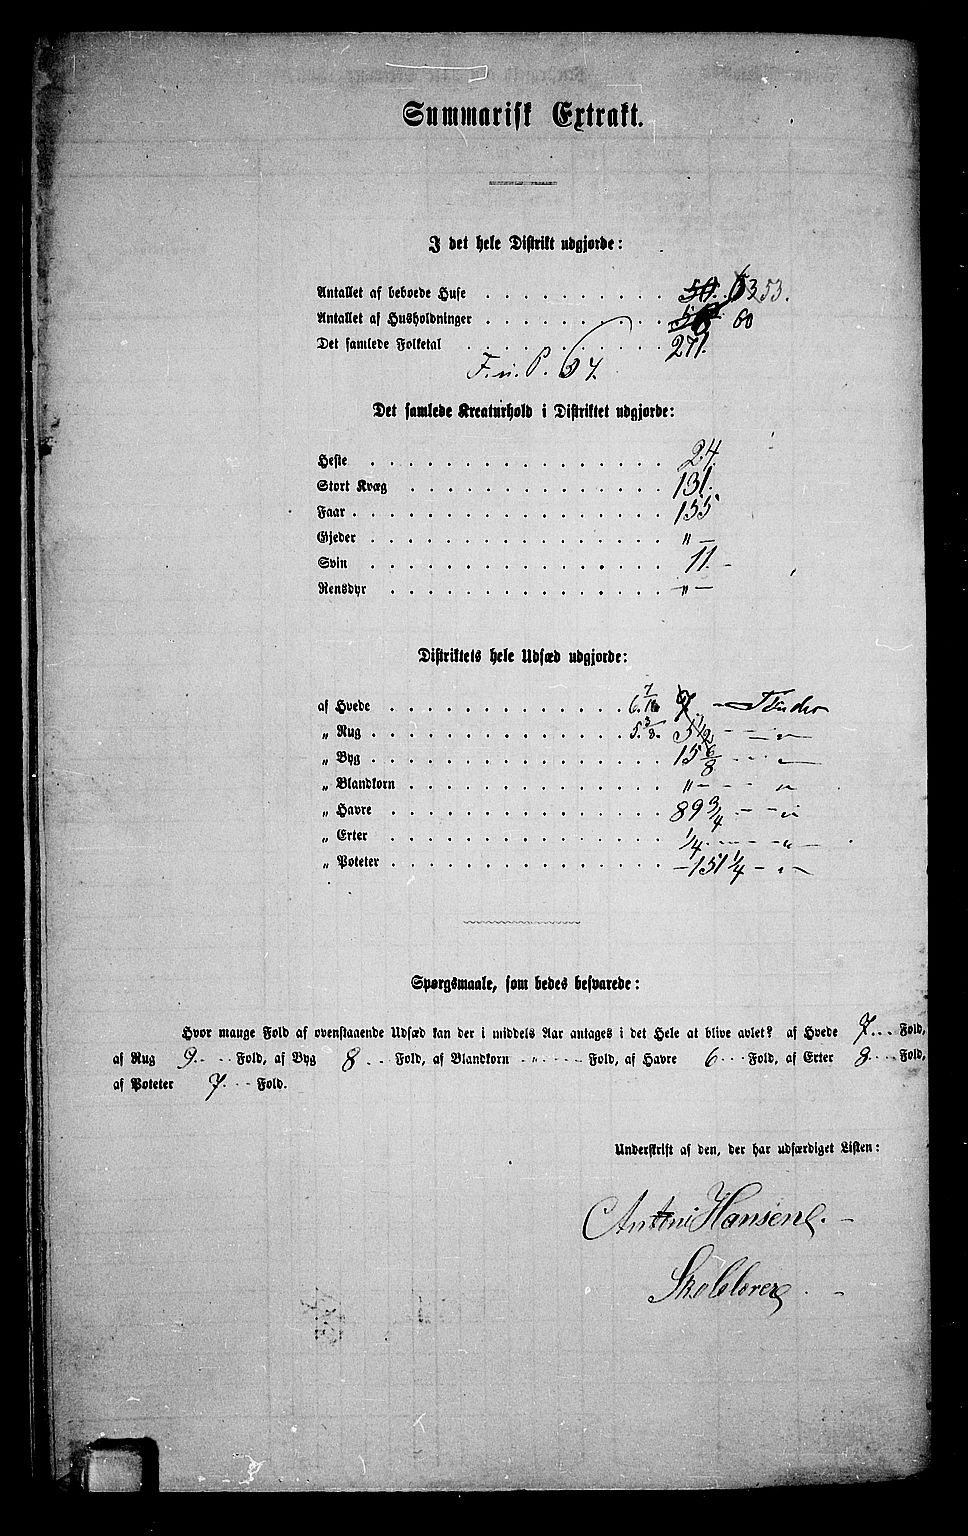 Summarisk Extrakt.
I det hele Distrikt udgjorde:
Antallet af beboede Huse . . . . . . . . . . 50. 53 53.
Antallet af Husholdninger . . . . . . . . . . 60
Det samlede Folketal . . . . . . . . . . 271.
F. n. P. 67.
Det samlede Kreaturhold i Distriktet udgjorde:
Heste . . . . . . . . . . 24.
Stort Kvæg . . . . . . . . . . 131.
Faar . . . . . . . . . . 155
Gjeder . . . . . . . . . . " —
Svin . . . . . . . . . . 11. -
Rensdyr . . . . . . . . . . —"—
Distriktets hele Udsæd udgjorde:
af Hvede . . . . . . . . . . 6. 7/16 7. — Tønder
„ Rug . . . . . . . . . . 5. 3/8. 5 1/2 — — „ —
„ Byg . . . . . . . . . . 15 6/8 - - - „ —
„ Blandkorn . . . . . . . . . . " — - - „
„ Havre . . . . . . . . . . 89 3/4 — — „
„ Erter . . . . . . . . . . 1/4 - — - — „ —
„ Poteter . . . . . . . . . . — 151 1/4 — „ —
Spørgsmaale, som bedes besvarede:
Hvor mange Fold af ovenstaaende Udsæd kan der i middels Aar antages i det Hele at blive avlet? af Hvede 7. Fold,
af Rug 9. Fold, af Byg 8 Fold, af Blandkorn " Fold, af Havre 6 Fold, af Erter 8 Fold,
af Poteter 7. Fold.
Underskrift af den, der har udfærdiget Listen:
Antoni Hansen. —
Skolelærer. —